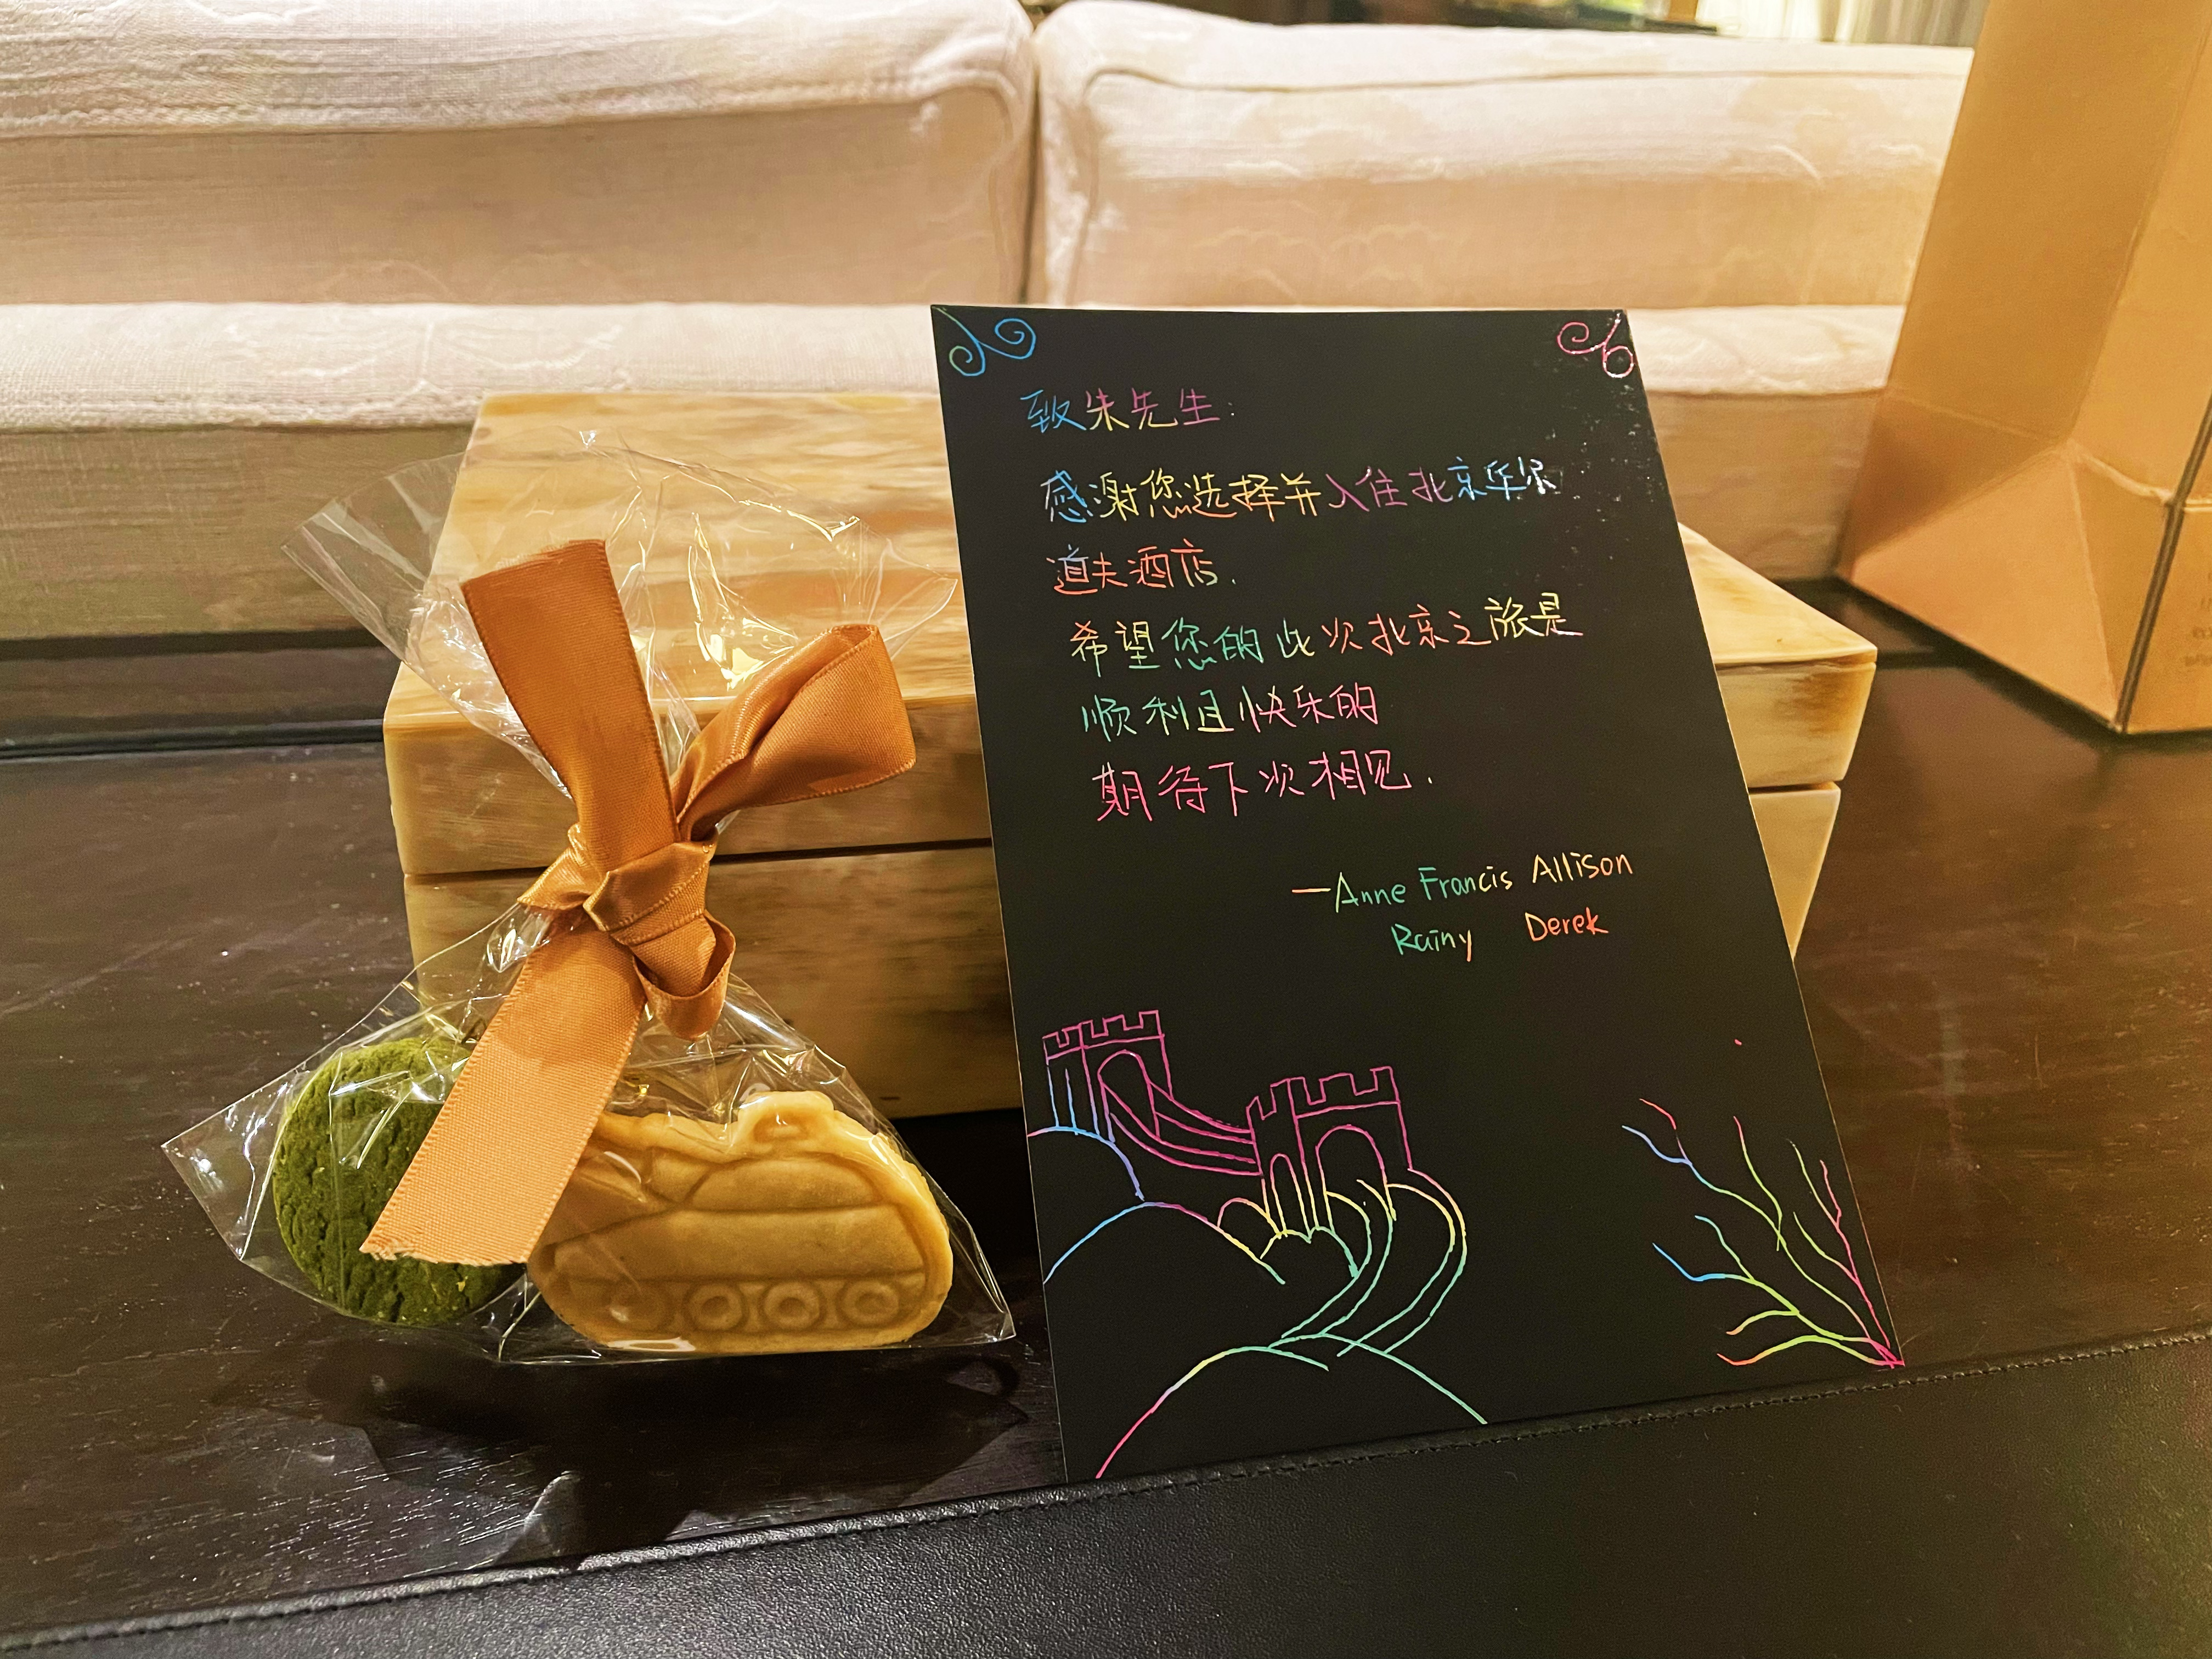 致朱先生:
感谢您选择并入住北京华尔
道夫酒店.
希望您的此次北京之旅是
顺利且快乐的
期待下次相见.
—Anne Francis Allison
Rainy Derek